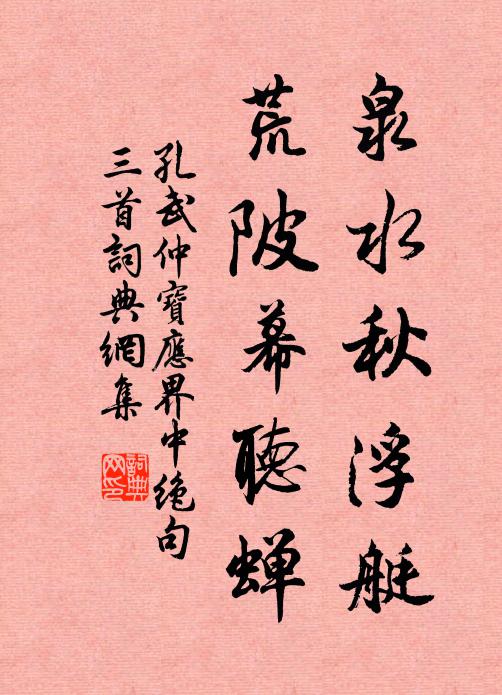 泉水秋浮艇
荒陂幕聽蟬
孔武仲寶應界中絶句
三首詞典網集
詞典
网印